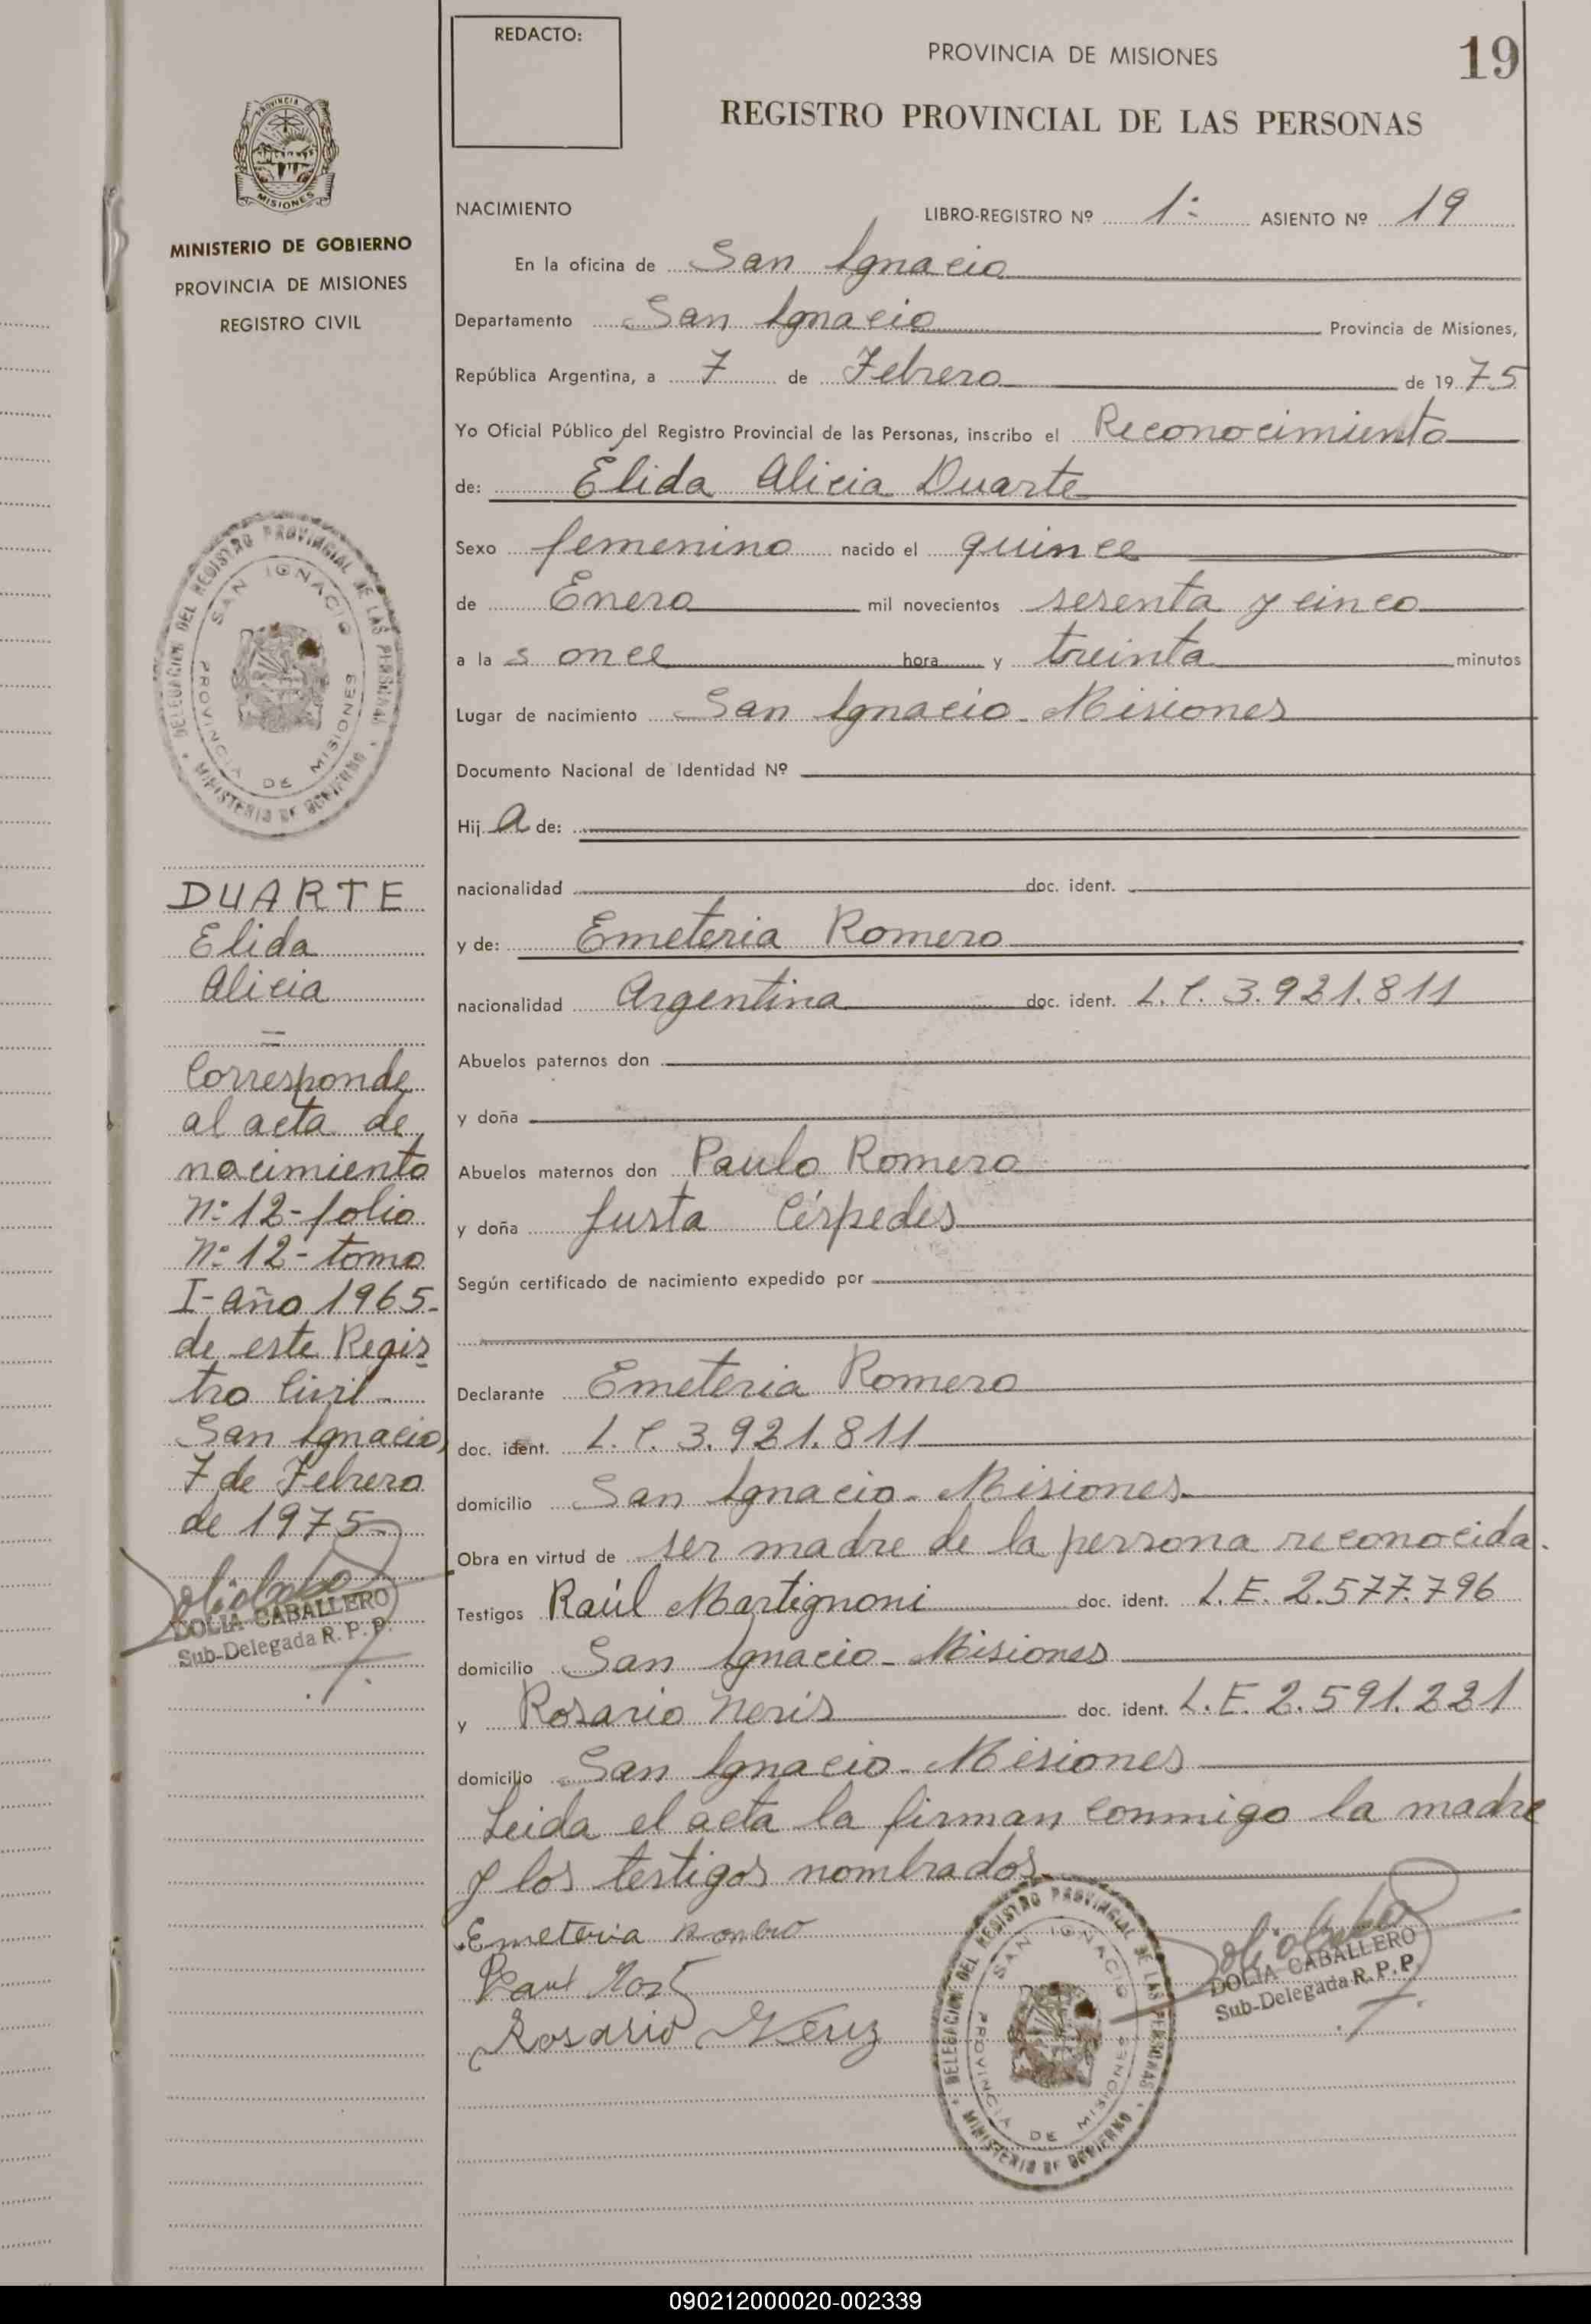 REDACTO:
PROVINCIA DE MISIONES
19
REGISTRO PROVINCIAL DE LAS PERSONAS
MISIONES
MINISTERIO DE GOBIERNO
PROVINCIA DE MISIONES
REGISTRO CIVIL
NACIMIENTO
LIBRO-REGISTRO Nº 1º ASIENTO Nº 19
En la oficina de San Ignacio
Departamento San Ignacio Provincia de Misiones,
República Argentina, a 7 de Febrero de 1975
Yo Oficial Público del Registro Provincial de las Personas, inscribo el Reconocimiento
de: Élida Alicia Duarte
Sexo femenino nacido el quince
de Enero mil novecientos sesenta y cinco
a las once hora y treinta minutos
Lugar de nacimiento San Ignacio - Misiones
Documento Nacional de Identidad Nº
Hija de:
nacionalidad doc. ident.
y de: Emeteria Romero
nacionalidad Argentina doc. ident. L.C. 3.921.811
Abuelos paternos don
y doña
Abuelos maternos don Paulo Romero
y doña Justa Céspedes
Según certificado de nacimiento expedido por
Declarante Emeteria Romero
doc. ident. L.C. 3.921.811
domicilio San Ignacio - Misiones
Obra en virtud de ser madre de la persona reconocida.
Testigos Raúl Martignoni doc. ident. L.E. 2.577.796
domicilio San Ignacio - Misiones
y Rosario Neris doc. ident. L.E. 2.591.221
domicilio San Ignacio - Misiones
Leida el acta la firman conmigo la madre
y los testigos nombrados.
Emeteria Romero
Raul
Rosario Neriz
DELEGACION DEL REGISTRO PROVINCIAL DE LAS PERSONAS
SAN IGNACIO
PROVINCIA DE MISIONES
MINISTERIO DE GOBIERNO
DOLIA CABALLERO
Sub-Delegada R. P. P.
DELEGACION DEL REGISTRO PROVINCIAL DE LAS PERSONAS
SAN IGNACIO
PROVINCIA DE MISIONES
MINISTERIO DE GOBIERNO
DUARTE
Elida
Alicia
Corresponde
al acta de
nacimiento
Nº 12 - folio
Nº 12 - tomo
I - año 1965 -
de este Regis
tro Civil -
San Ignacio,
7 de Febrero
de 1975
DOLIA CABALLERO
Sub-Delegada R. P. P.
090212000020-002339